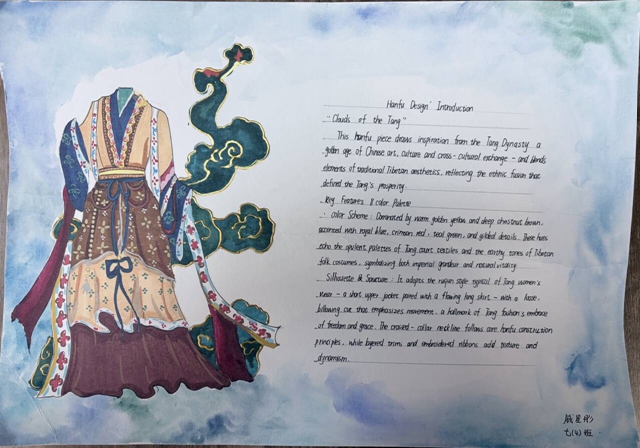 Hanfu Design Introduction
"Clouds of the Tang"
This hanfu piece draws inspiration from the Tang Dynasty a
golden age of Chinese art, culture and cross-cultural exchange - and blends
elements of traditional Tibetan aesthetics, reflecting the ethnic fusion that
defined the Tang's prosperity.
Key Features & Color Palette
: Color Scheme: Dominated by warm golden yellow and deep chestnut brown,
accented with royal blue, crimson red, teal green, and gilded details. These hues
echo the opulent palettes of Tang court textiles and the earthy tones of Tibetan
folk costumes, symbolizing both imperial grandeur and natural vitality
Silhouette & Structure: It adopts the ruqun style typical of Tang women's
wear - a short upper jacket paired with a flowing long skirt - with a loose,
billowing cut that emphasizes movement, a hallmark of Tang fashion's embrace
of freedom and grace. The crossed-collar neckline follows core hanfu construction
principles, while layered trims and embroidered ribbons add texture and
dynamism.
七(4)班